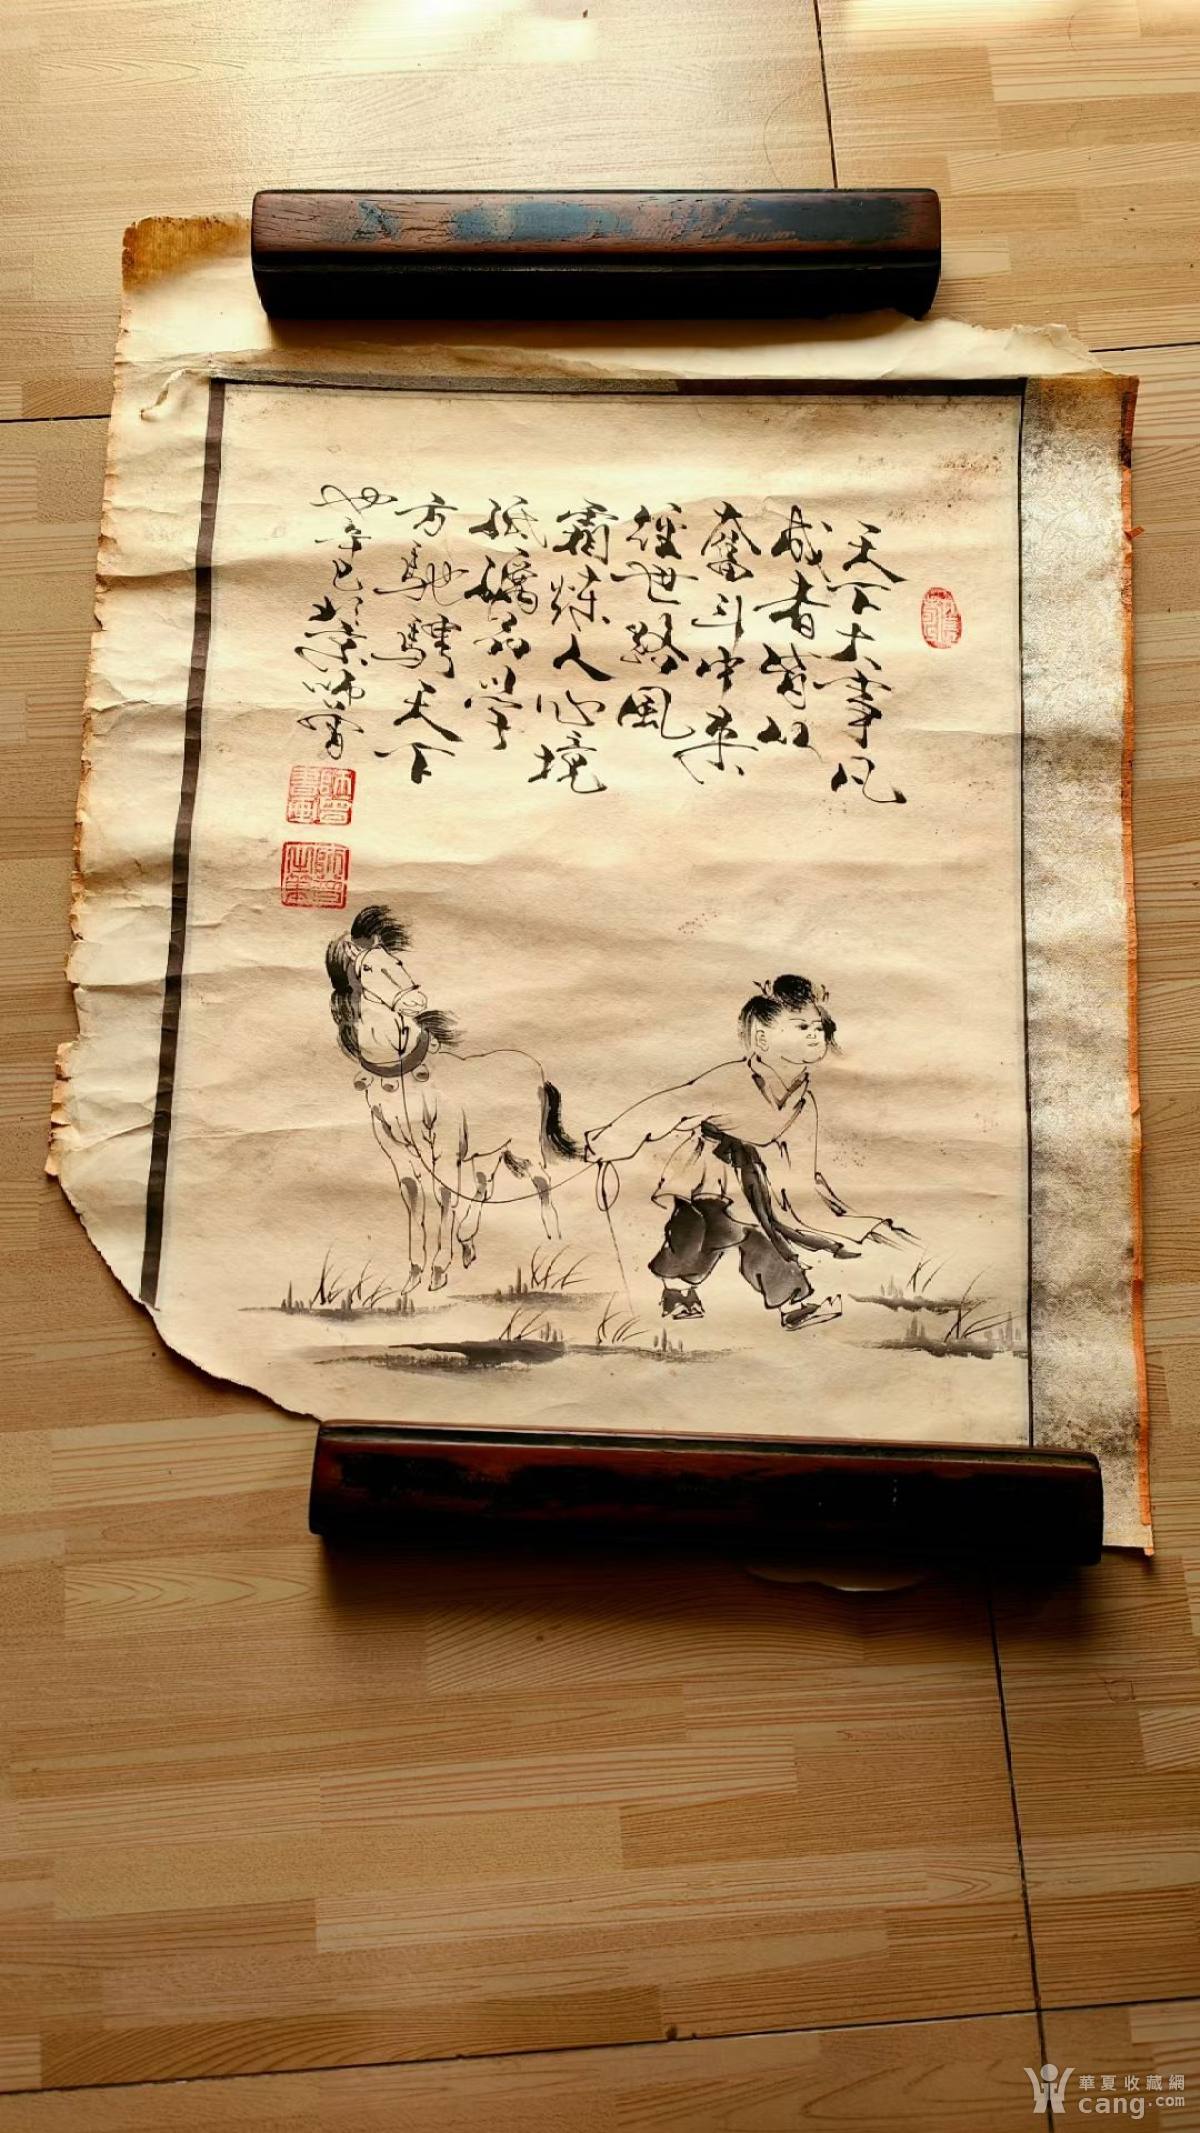 天下大事凡
成者皆从
奮斗中来
经世路風
霜炼人心境
砥礪而学
方馳騁天下
也辛巳
師曾
華夏收藏網
cang.com